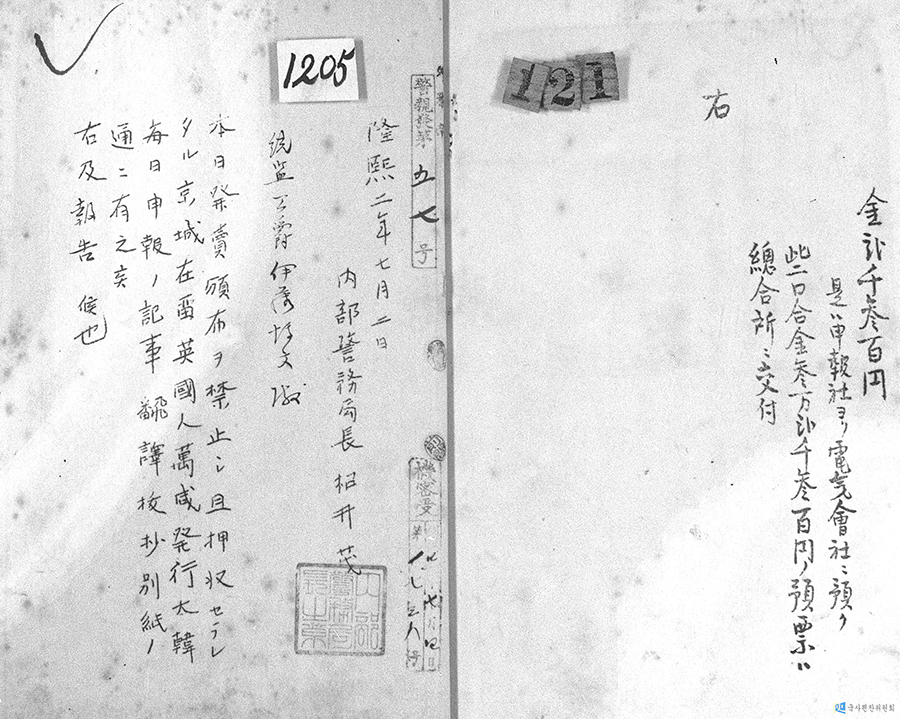 121
右
金弐千参百円
是ハ申報社ヨリ電気會社ニ預ケ
此二口合金参万弐千参百円ノ預票ハ
總合所ニ交付
1205
警親発第五七号
隆熙二年七月二日
内部警務局長 松井茂
統監公爵伊藤博文殿
本日発賣頒布ヲ禁止シ且押収セラレ
タル京城在留英國人萬咸発行大韓
每日申報ノ記事翻譯校抄別紙ノ
通ニ有之候
右及報告候也
機密受
국사편찬위원회